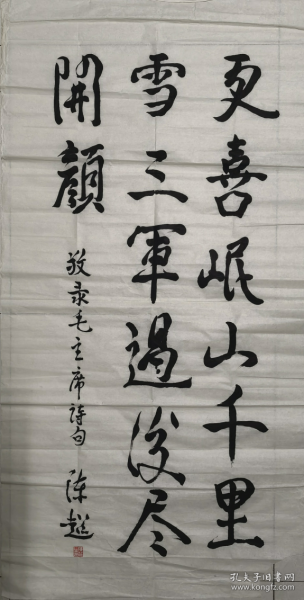 更喜岷山千里
雪三軍過後尽
開顏
敬录毛主席詩句
陈超
孔夫子旧书网
www.kongfz.com